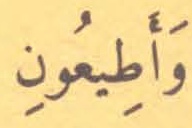 وَأَطِيعُونِ